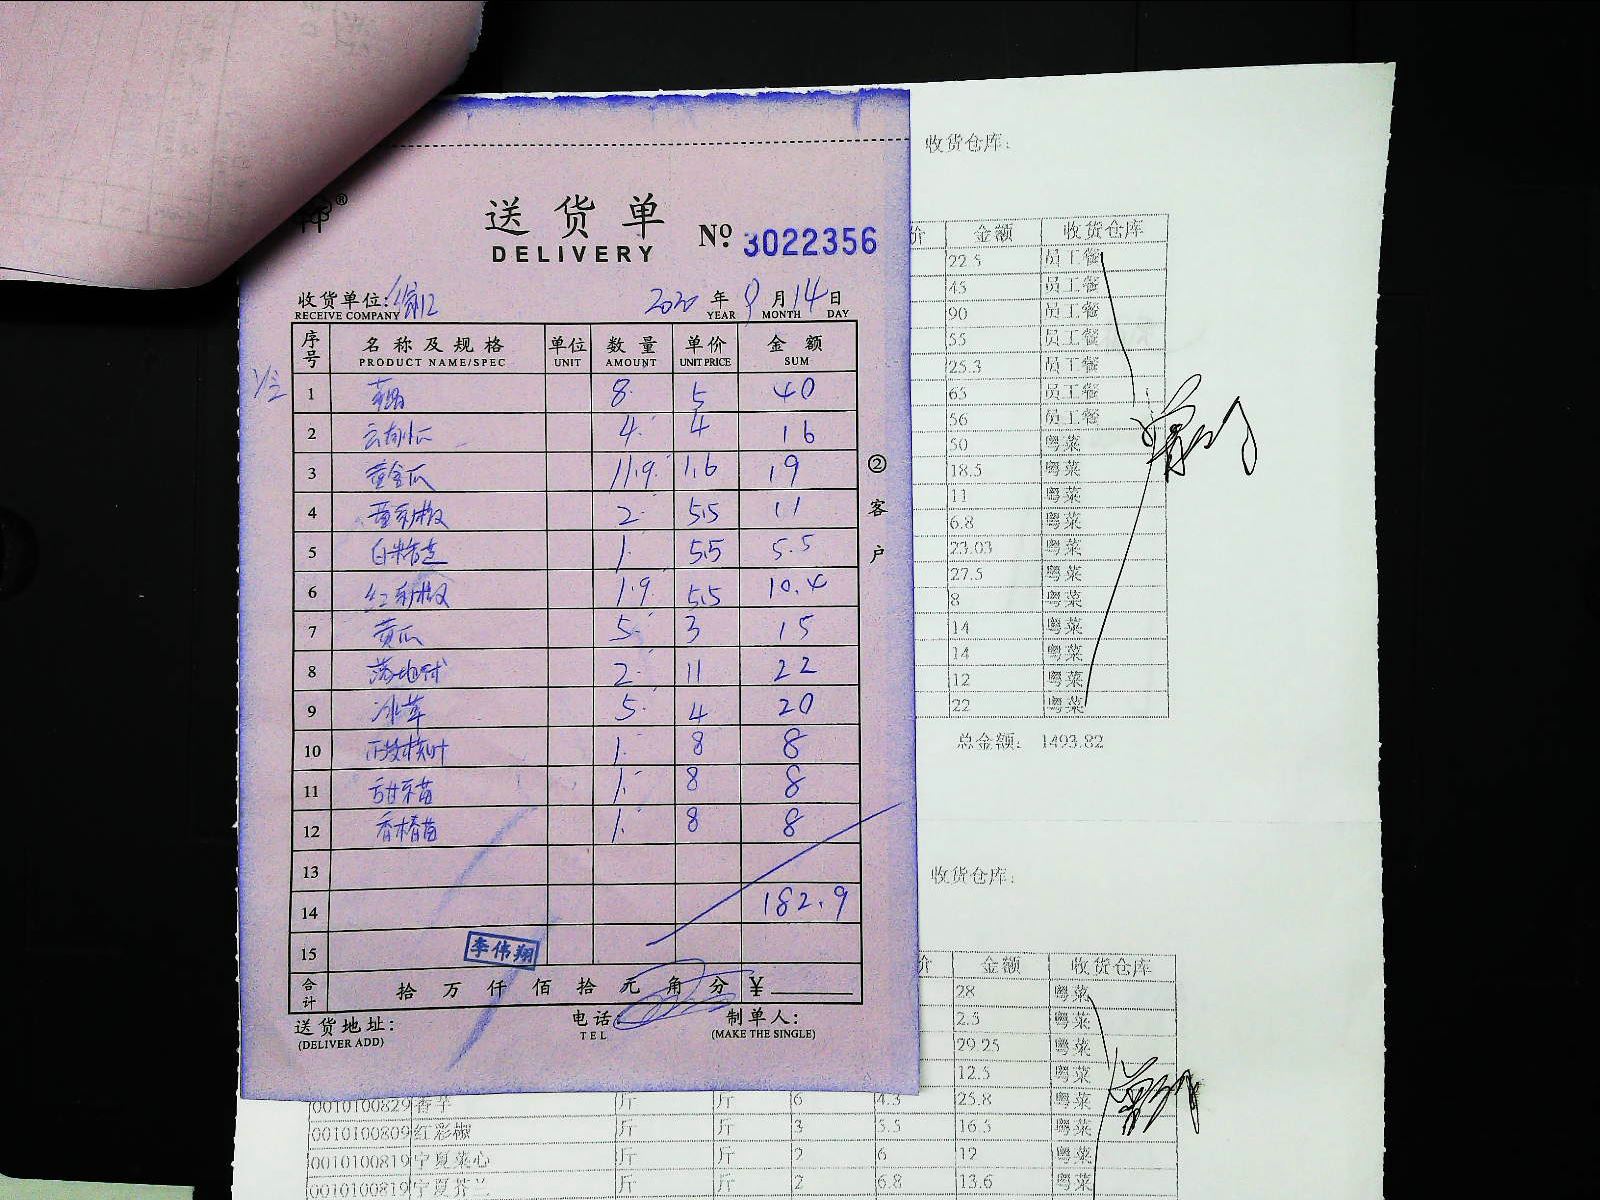 收货仓库:
送货单
DELIVERY
№ 3022356
收货单位:
RECEIVE COMPANY
2020 年 9 月 14 日
YEAR MONTH DAY
序号 名称及规格 单位 数量 单价 金额
PRODUCT NAME/SPEC UNIT AMOUNT UNIT PRICE SUM
1 8 5 40
2 4 4 16
3 黄金瓜 11.9 1.6 19
4 黄彩椒 2 5.5 11
5 1 5.5 5.5
6 红彩椒 1.9 5.5 10.4
7 黄瓜 5 3 15
8 2 11 22
9 冰草 5 4 20
10 1 8 8
11 甜菜苗 1 8 8
12 香椿苗 1 8 8
13
14 182.9
15
李伟翔
合计 拾 万 仟 佰 拾 元 角 分 ¥
送货地址:
(DELIVER ADD)
电话:
TEL
制单人:
(MAKE THE SINGLE)
② 客户
价 金额 收货仓库
22.5 员工餐
45 员工餐
90 员工餐
55 员工餐
25.3 员工餐
65 员工餐
56 员工餐
50 粤菜
18.5 粤菜
11 粤菜
6.8 粤菜
23.03 粤菜
27.5 粤菜
8 粤菜
14 粤菜
14 粤菜
12 粤菜
22 粤菜
总金额: 1493.82
收货仓库:
价 金额 收货仓库
28 粤菜
2.5 粤菜
29.25 粤菜
12.5 粤菜
0010100829 香芋 斤 斤 6 4.3 25.8 粤菜
0010100809 红彩椒 斤 斤 3 5.5 16.5 粤菜
0010100819 宁夏菜心 斤 斤 2 6 12 粤菜
0010100819 宁夏芥兰 斤 斤 2 6.8 13.6 粤菜